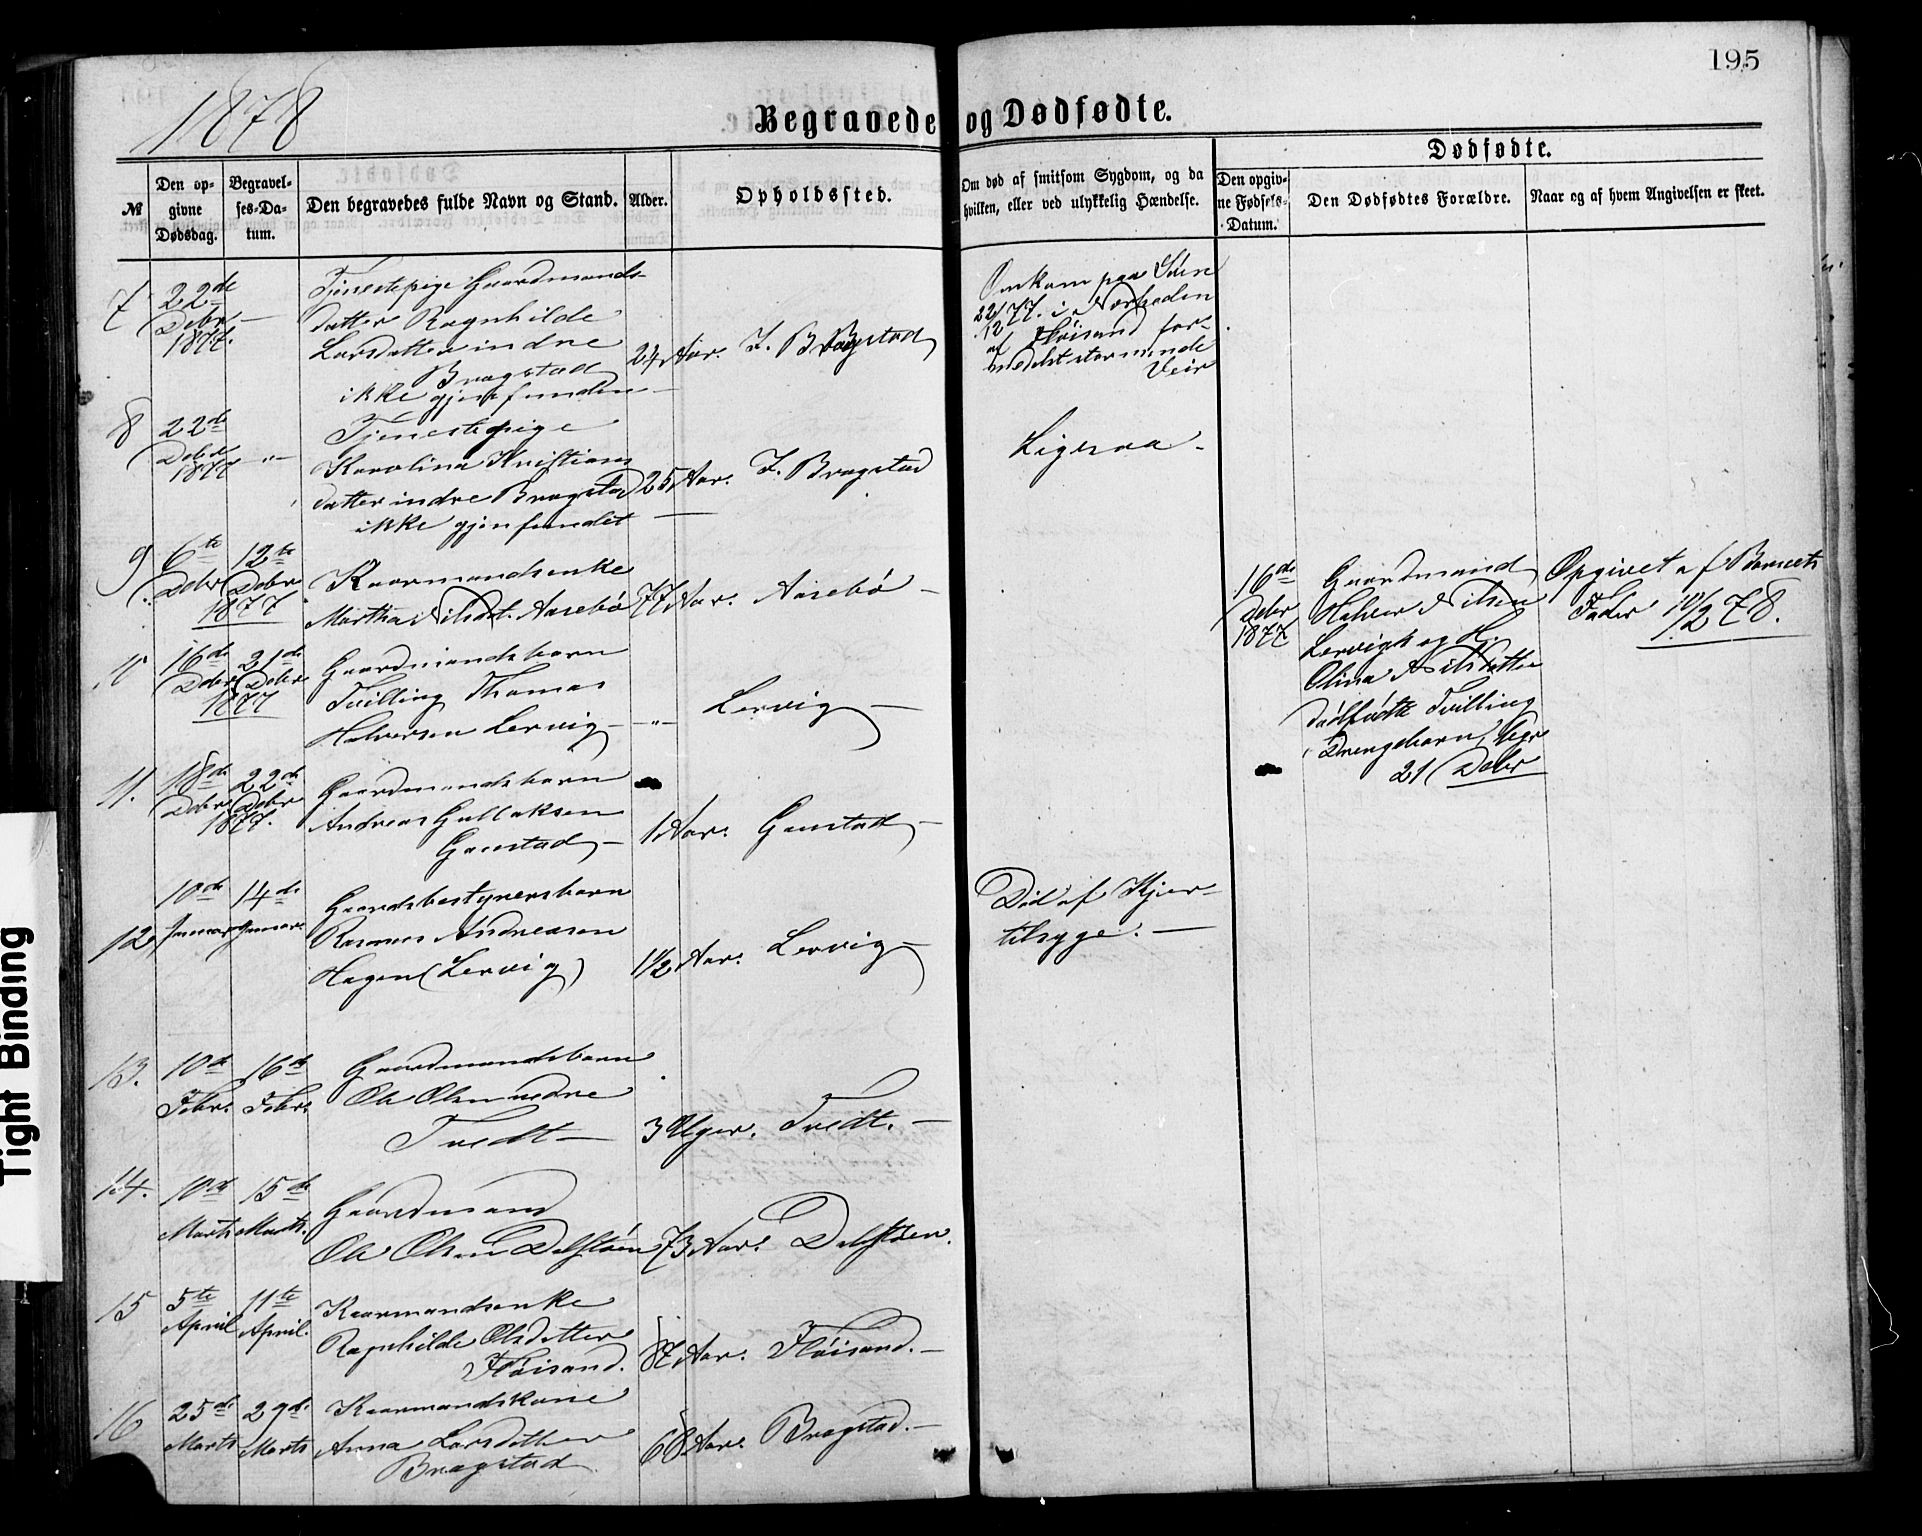 195
1878
Begravede og Dødfødte.
Dødfødte.
№
Den opgivne Dødsdag.
Begravelses-Datum.
Den begravedes fulde Navn og Stand.
Alder.
Opholdssted.
Om død af smitsom Sygdom, og da hvilken, eller ved ulykkelig Hændelse.
Den opgivne Fødsels-Datum.
Den Dødfødtes Forældre.
Naar og af hvem Angivelsen er skeet.
7
22de
Debr
1877.
—
Tjenestepige Gaardmands-
datter Ragnhilde
Larsdatter indre
Bragstad
ikke gjenfunden —
24 Aar.
I. Bragstad
Omkom paa Søen
22/12 77. i Nærheden
af Fløisand for-
medelst stormende
Veir
8
22de
Debr
1877
—"—
Tjenestepige
Karolina Kristians
datter indre Bragstad
ikke gjenfundet —
25 Aar.
I. Bragstad
Ligesaa.
9
6te
Debr
12te
Debr
1877
Kaarmandsenke
Martha Nilsdt. Aasebø
77 Aar.
Aasebø —
16de
Debr
1877
Gaardmand
Halvor Nilsen
Lervigk og H.
Olina Nilsdatter
dødfødte Tvilling
Drengebarn, bgr
21 Debr
Opgivet af Barnets
Fader 10/2 78.
10
16de
Debr
21de
Debr
1877
Gaardmandsbarn
Tvilling Thomas
Halvorsen Lervig —
—"—
Lervig —
11.
18de
Debr
22de
Debr
1877.
Gaardmandsbarn
Andreas Gullaksen
Gaustad —
1 Aar.
Gaustad —
12
10de
Januar
14de
Januar
Gaardsbestyrersbarn
Rasmus Andreasen
Hagen (Lervig)
1½ Aar.
Lervig —
Død af Kjer-
telsyge. —
13.
10de
Febr.
16de
Febr.
Gaardmandsbarn
Ole Olsen nedre
Tvedt —
3 Uger.
Tvedt. —
14.
10de
Marts
15de
Marts.
Gaardmand
Ole Olsen Dalstøen
73 Aar.
Dalstøen.
15
5te
April
11te
April.
Kaarmandsenke
Ragnhilde Olsdatter
Fløisand.
87 Aar.
Fløisand. —
16
25de
Marts
29de
Marts
Kaarmandskone
Anna Larsdatter
Bragstad
68 Aar.
Bragstad. —
Tight Binding